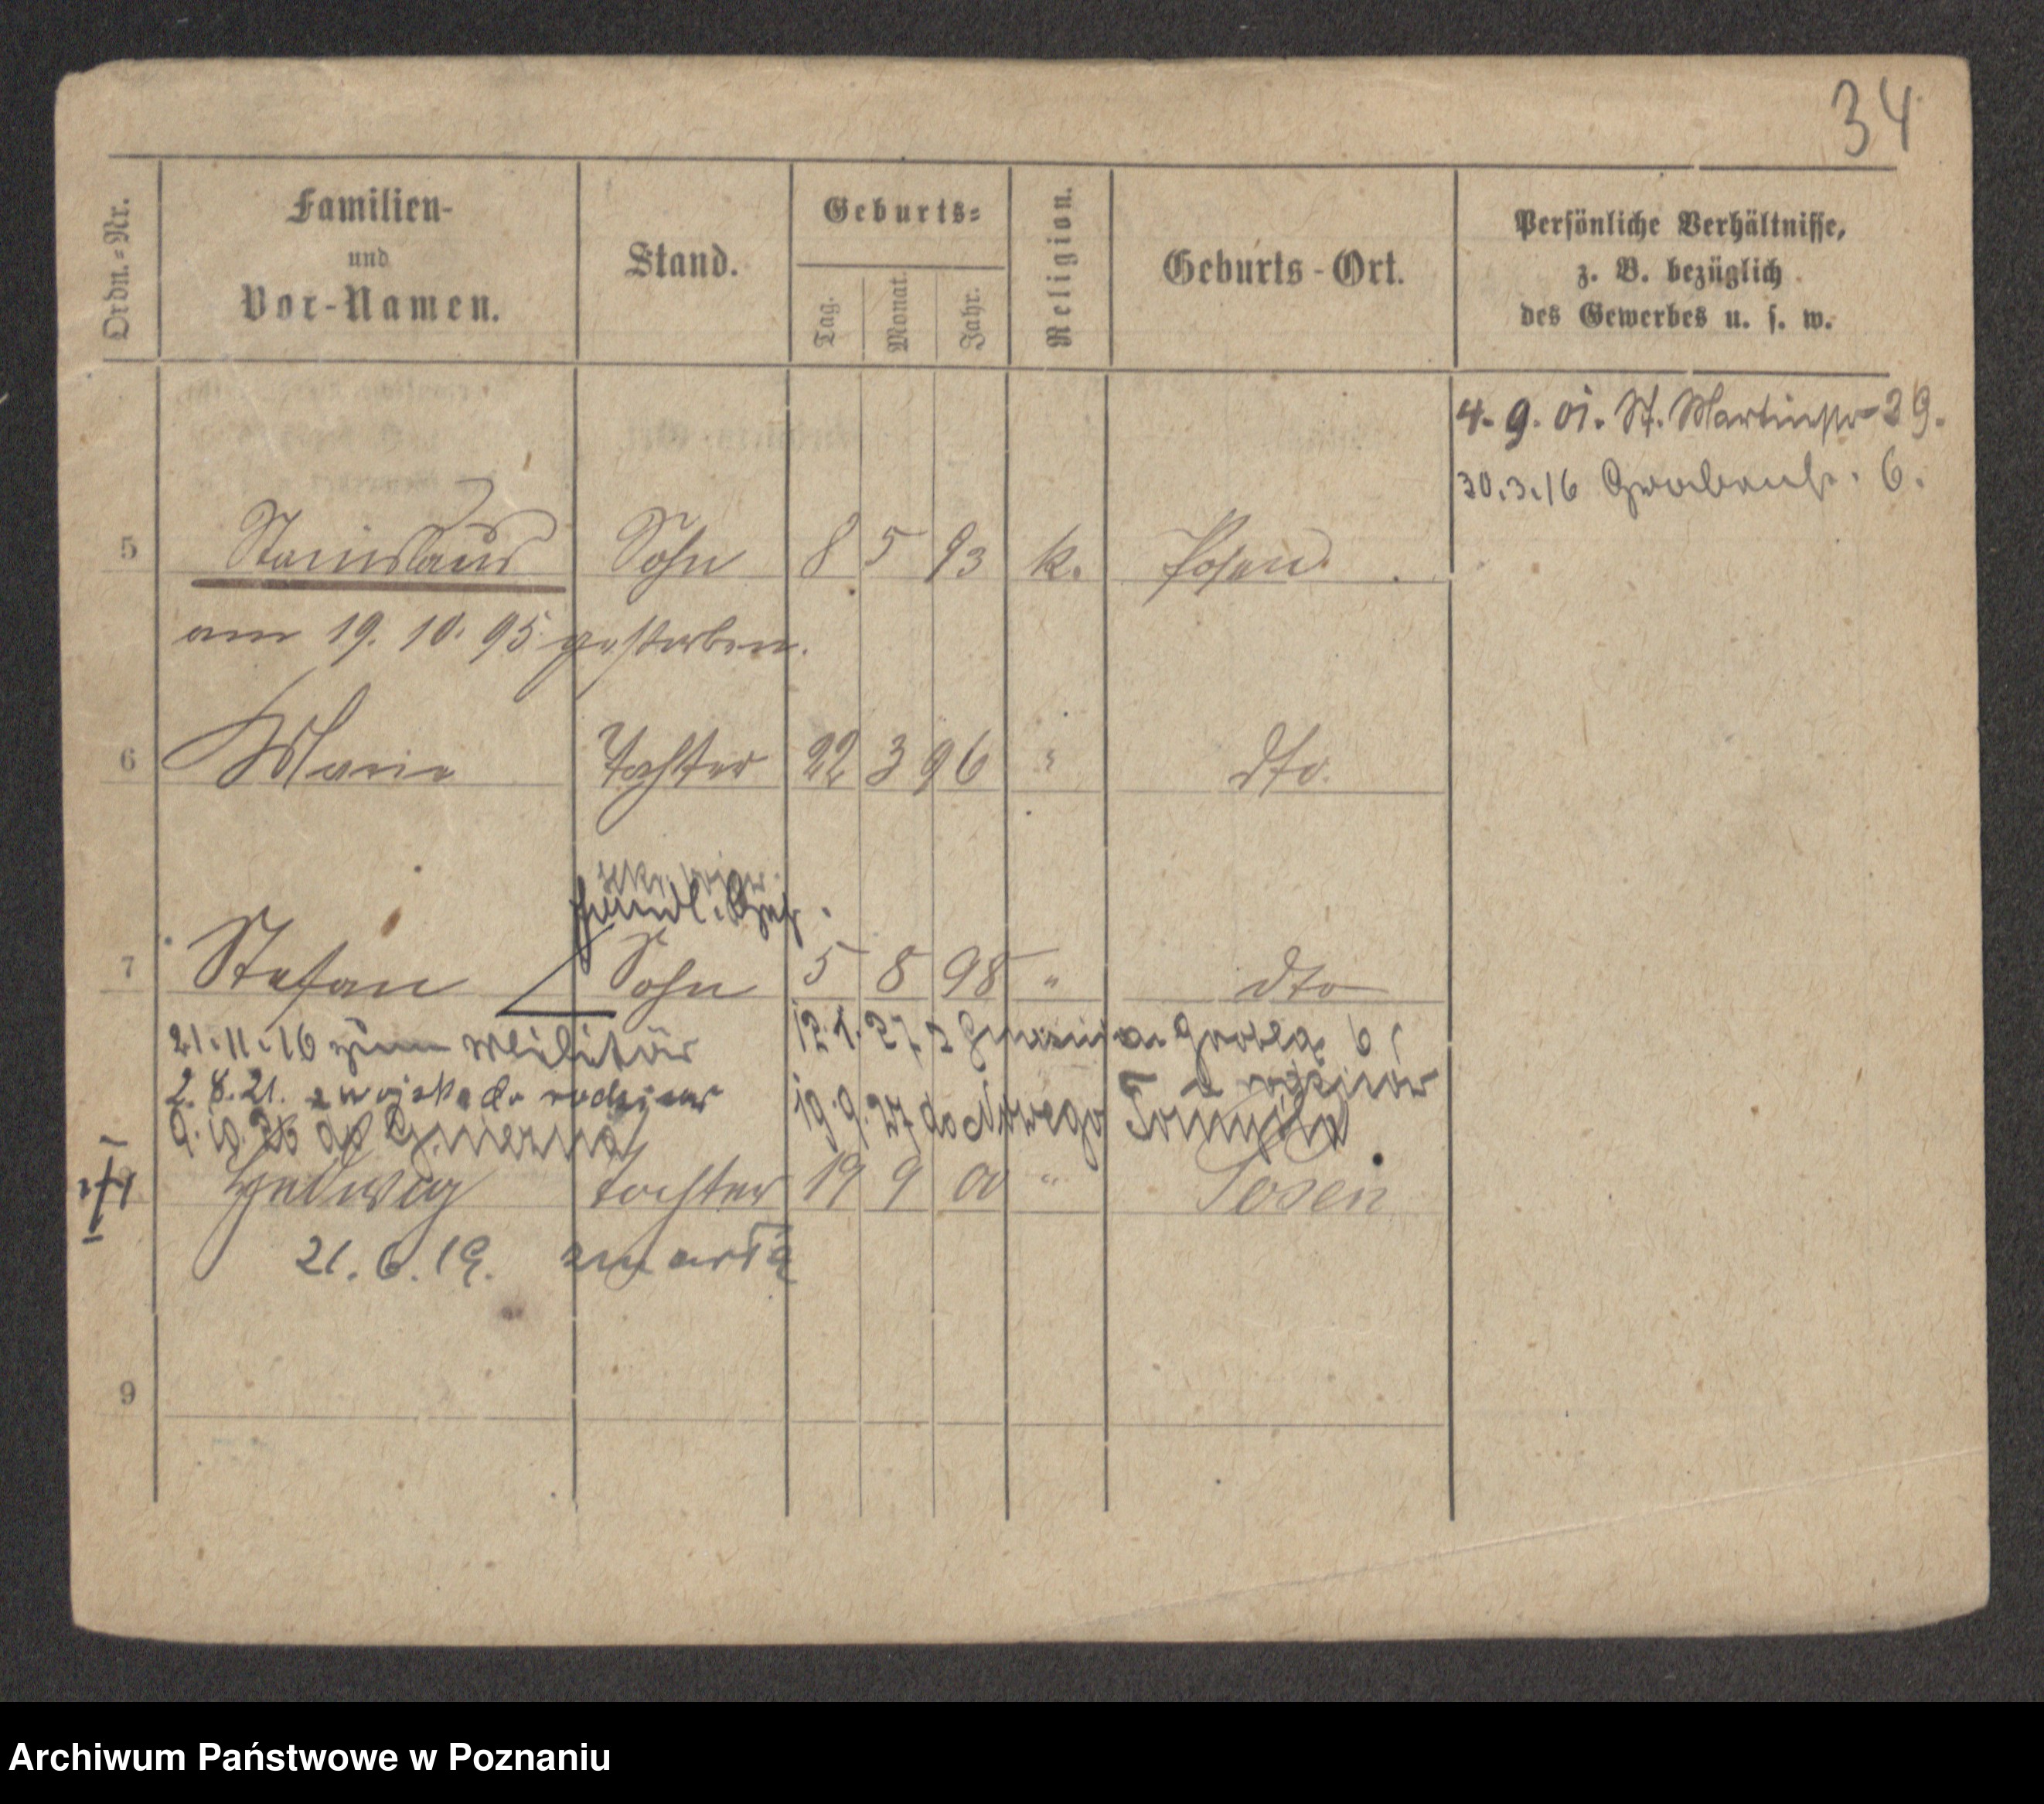 34
Ordn.-Nr.
Familien-
und
Vor-Namen.
Stand.
Geburts-
Tag.
Monat.
Jahr.
Religion.
Geburts-Ort.
Persönliche Verhältnisse,
z. B. bezüglich
des Gewerbes u. s. w.
4. 9. 01. St. Martinstr 29.
30.3.16 Grabenstr. 6.
5 Stanislaus Sohn 8 5 93 k. Posen
am 19. 10. 95 gestorben.
6 Marie Tochter 22 3 96 " dto.
7 Stefan Sohn 5 8 98 " dto
21.11.16 zum Militär
12.1.27 z Gniezna Grobla 6
2. 8. 21. z wojska do
19.9.27 do Nowego Tomyśla
do Gniezna
Hedwig tochter 19 9 00 " Posen
21.6.19. zmarła
9
Archiwum Państwowe w Poznaniu